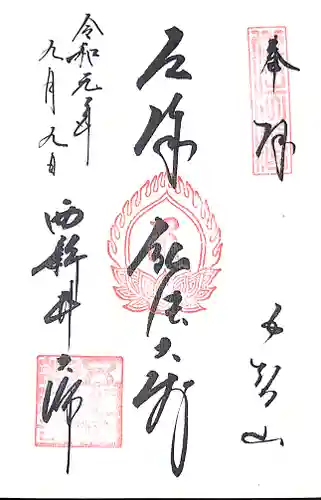 奉拝
五智山
厄除弘法大師
令和元年
九月九日
西新井大師